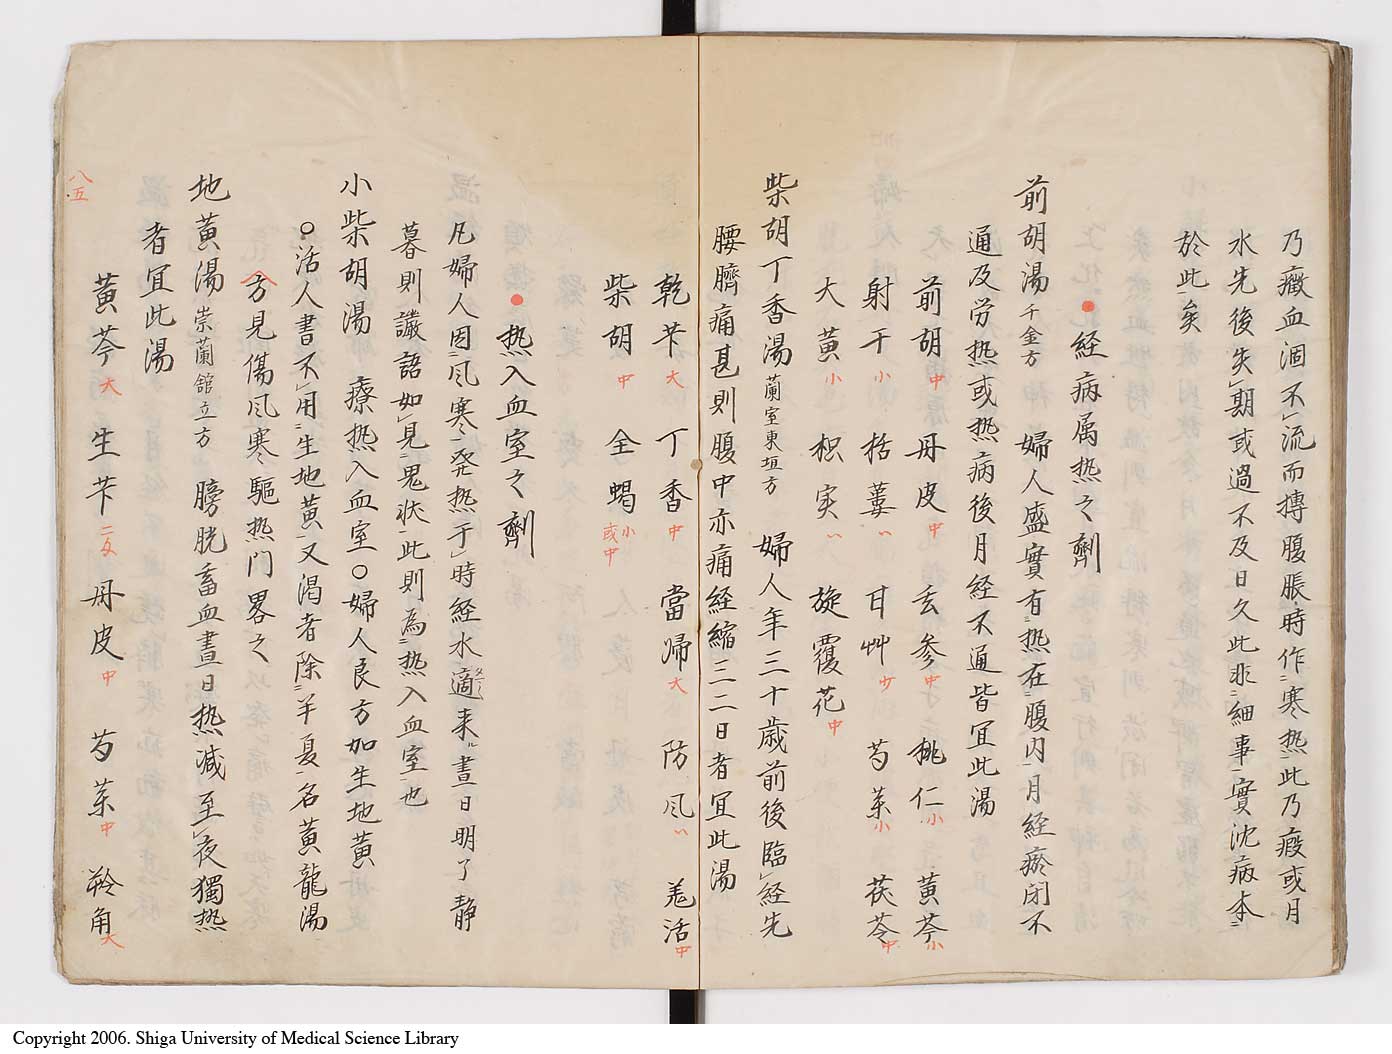 乃癥血涸不流而摶腹脹時作寒热此乃瘕或月
水先後失期或過不及日久此非細事實沈病本
於此矣
●経病属热之劑
前胡湯千金方 婦人盛實有热在腹内月経瘀闭不
通及労热或热病後月経不通皆宜此湯
前胡中 丹皮中 玄参中 桃仁小 黄芩小
射干小 括蔞〃 甘艸少 芍薬小 茯苓中
大黄小 枳実〃 旋覆花中
柴胡丁香湯蘭室東垣方 婦人年三十歳前後臨経先
腰臍痛甚則腹中亦痛経縮三二日者宜此湯
乾芐大 丁香中 當帰大 防風〃 羌活中
柴胡中 全蝎小或中
●热入血室之劑
凡婦人因風寒発热于時経水適来晝日明了静
暮則讝語如見鬼状此則為热入血室也
小柴胡湯 療热入血室○婦人良方加生地黄
○活人書不用生地黄又渇者除半夏名黄龍湯
方見傷風寒驅热門畧之
地黄湯崇蘭舘立方 膀胱畜血晝日热减至夜獨热
者宜此湯
黄芩大 生芐二匁 丹皮中 芍薬中 羚角大
八五
Copyright 2006. Shiga University of Medical Science Library